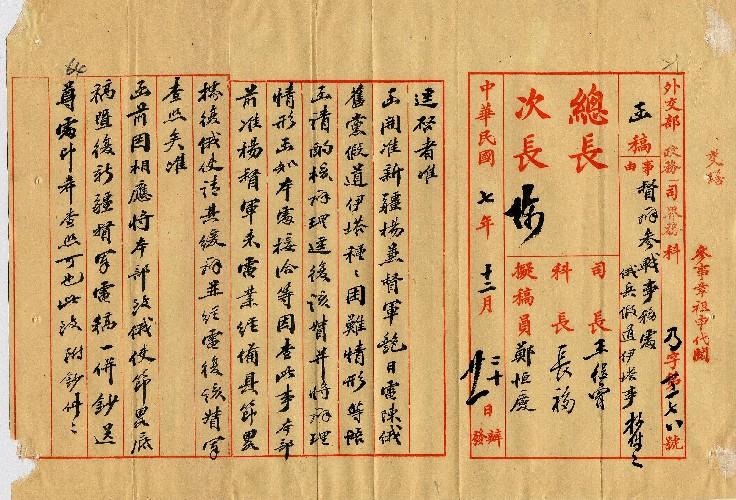 外交部 政務司界務科 乃字第二七八號
函稿
事由
督辦參戰事務處
俄兵假道伊塔事 抄件
總長
次長
司長 王
科長 長福
擬稿員 鄭恒慶
中華民國 七年 十二月 二十日 辦 發
參事章祖申代閱
逕啓者准
函開准新疆楊兼督軍 日電陳俄
舊黨假道伊塔種〻困難情形等 
函請酌核辦理逕復該督并將辦理
情形函知本處接洽等因查此事本部
前准楊督軍來電業經備具節畧
 俄使請其緩 並經電復該督軍
查照矣准
函前因相應將本部致俄使節畧底
稿暨復新疆督軍電稿一併鈔送
尊處 查照可也此致 附鈔件二